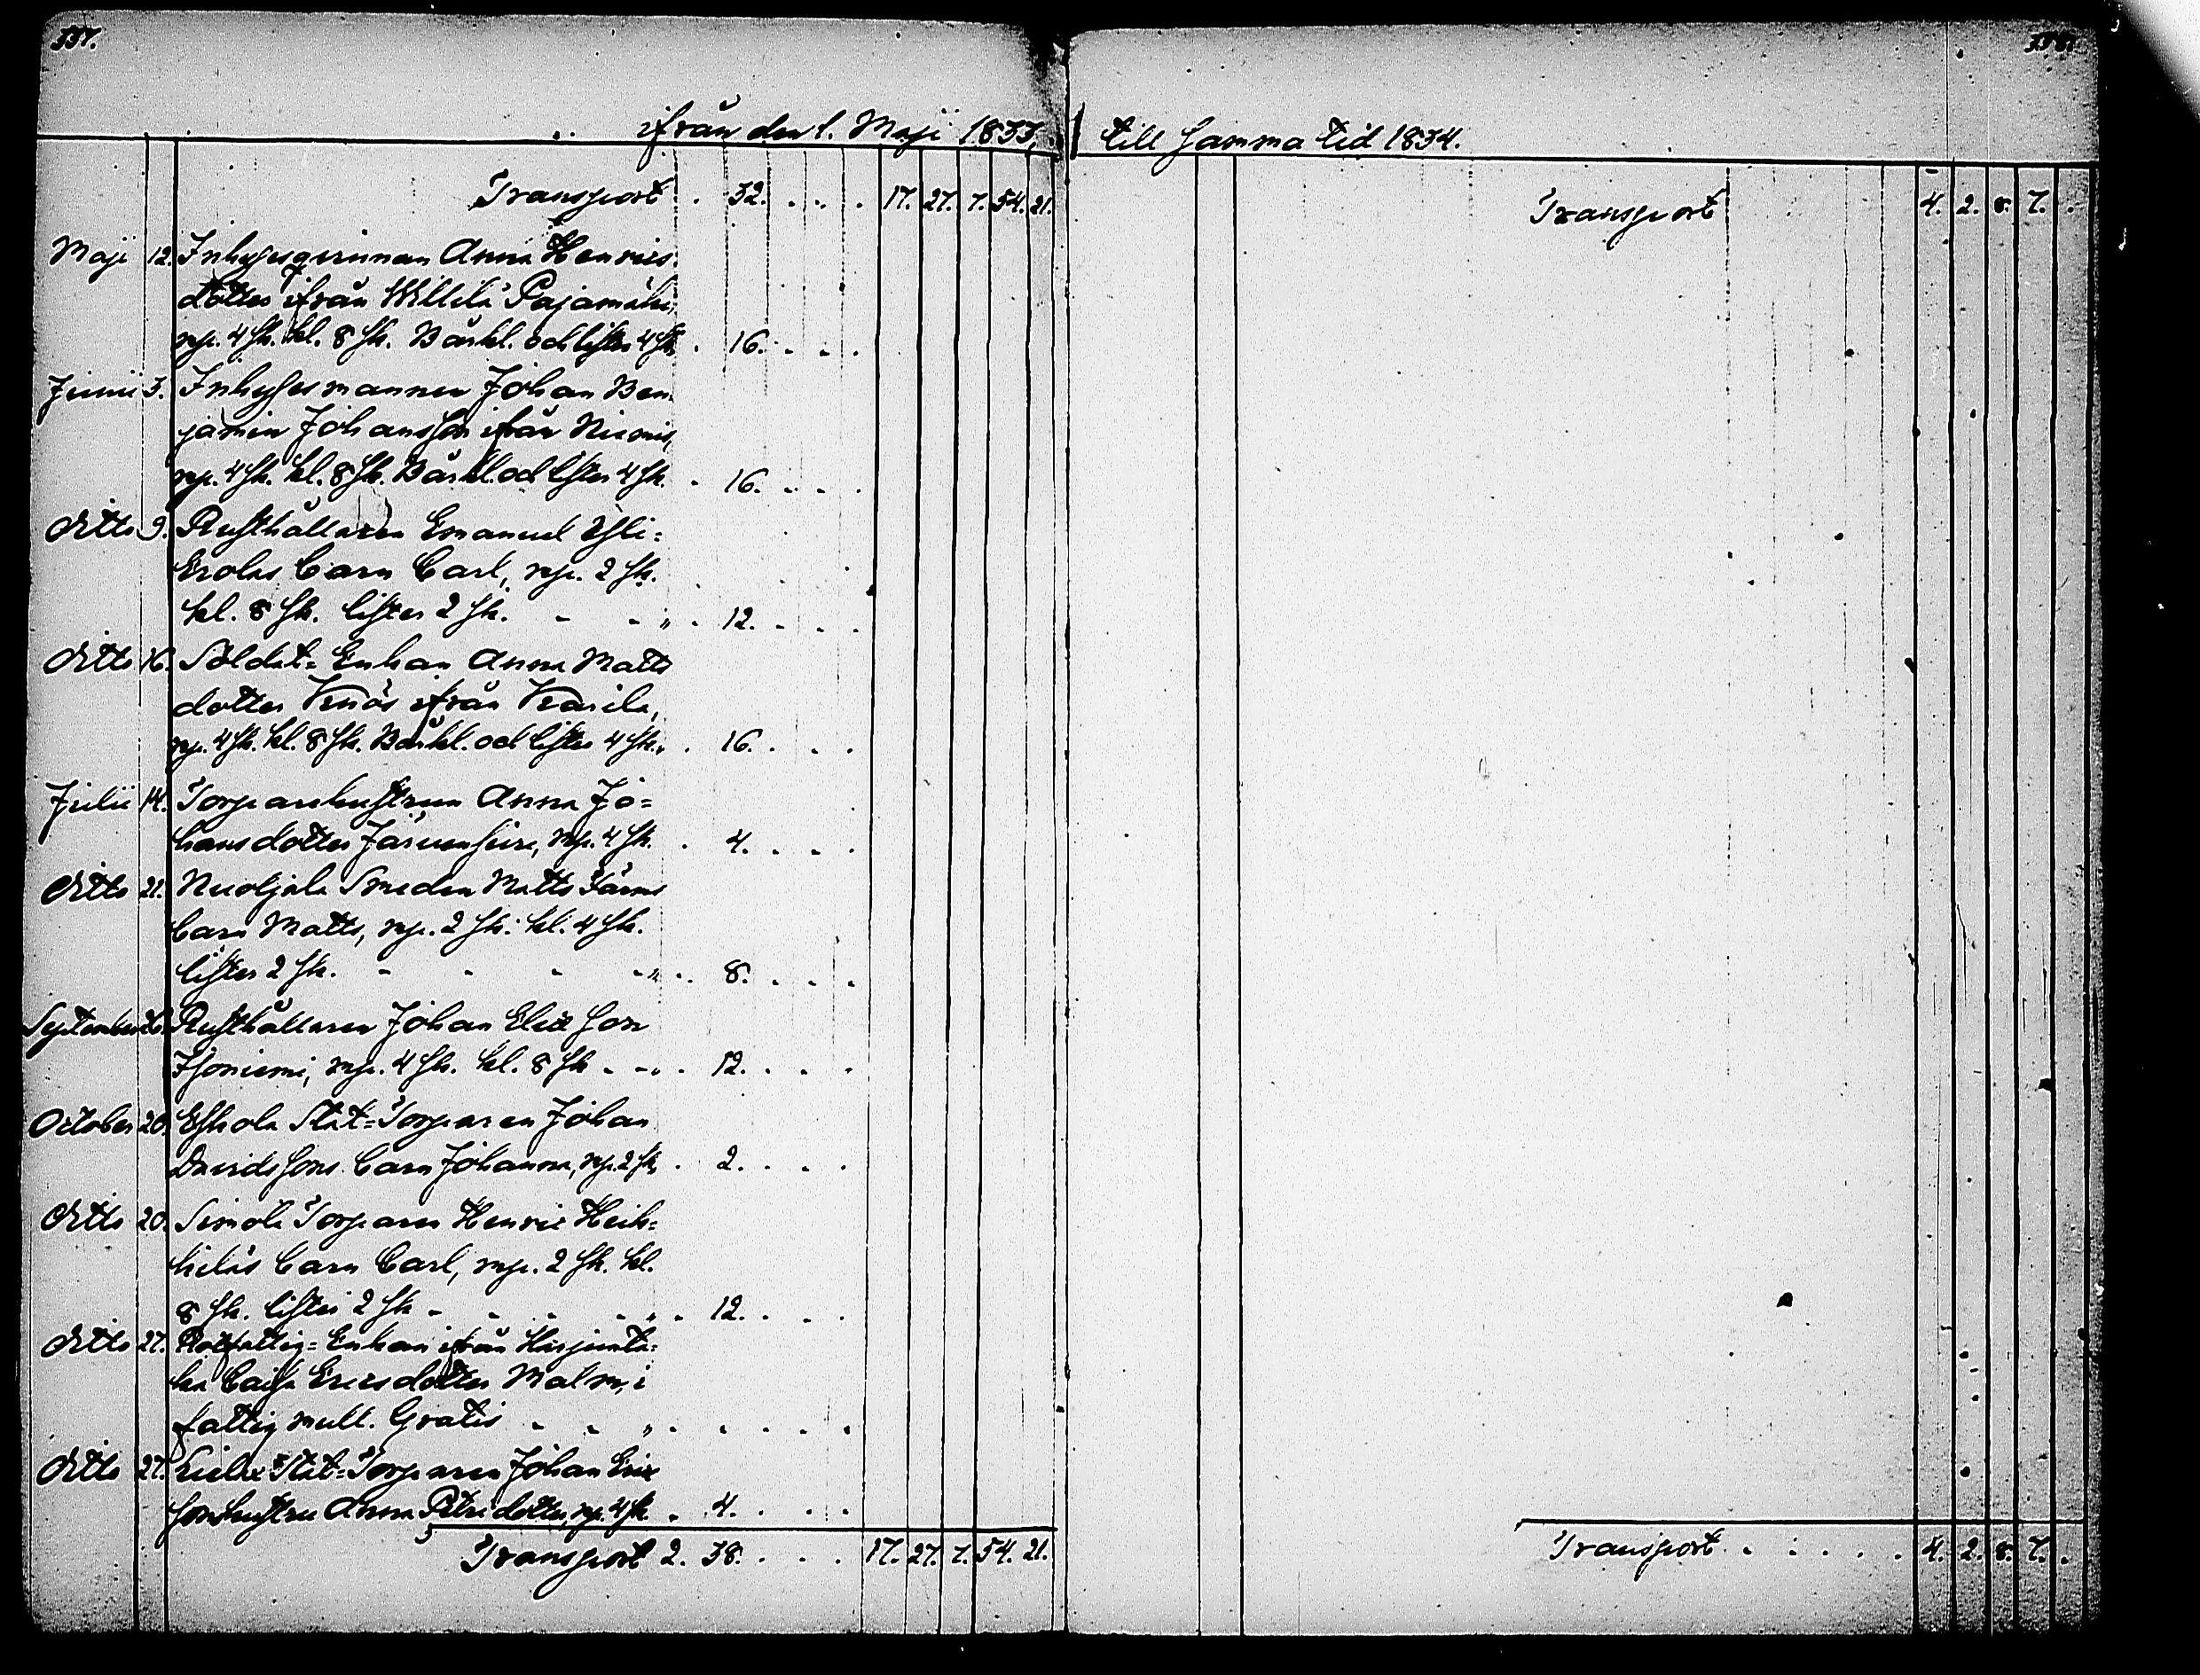 337.
338.
ifrån den 1. Maji 1833,
till samma tid 1834.
Transport . 32. . . . 17. 27. 7. 54. 21.
Transport 4. 2. 8. 7. .
Maji 12. Inhysesqvinnan Anna Henrics
dotter ifrån Willilä Pajamäki,
rp. 4 sk. kl. 8 sk. Bårkl. och lister 4 sk. . 16. . . .
Junii 3. Inhysesmannen Johan Ben
jamin Johansson ifrån Niemis,
rp. 4 sk. kl. 8 sk. Bårkl. och lister 4 sk. . 16. . . .
Ditto 9. Rusthållaren Emanuel Yli=
Erolas Barn Carl, rp. 2 sk.
kl. 8 sk. lister 2 sk. - - „ . 12. . . .
Ditto 16. Soldat=Enkan Anna Matts
dotter Knös ifrån Karila,
rp. 4 sk. kl. 8 sk. Bårkl. och lister 4 sk. „ . 16. . . .
Julii 14. Torparehustrun Anna Jo=
hansdotter Järvensivu, rp. 4 sk. . 4. . . .
Ditto 21. Nuoljala Smeden Matts
Barn Matts, rp. 2 sk. kl. 4 sk.
lister 2 sk. - - - - „ . 8. . . .
September Rusthållaren Johan Ericsson
Isoniemi, rp. 4 sk. kl. 8 sk - - „ . 12. . . .
October 20. Eskola Stat=Torparen Johan
Davidssons Barn Johanna, rp. 2 sk . 2. . . .
Ditto 20. Simola Torparen Henric Heik=
kiläs Barn Carl, rp. 2 sk. kl.
8 sk. lister 2 sk - - - - „ . 12. . . .
Ditto 27. Rotfattig=Enkan ifrån
ka Caisa Ericsdotter Malm, i
fattig mull. Gratis - - „ . . . . .
Ditto 27. Stat=Torparen Johan Eric
sons hustru Anna Petridotter, rp. 4 sk . 4. . . .
Transport 2. 38. . . . 17. 27. 7. 54. 21.
Transport . . . . . 4. 2. 8. 7. .